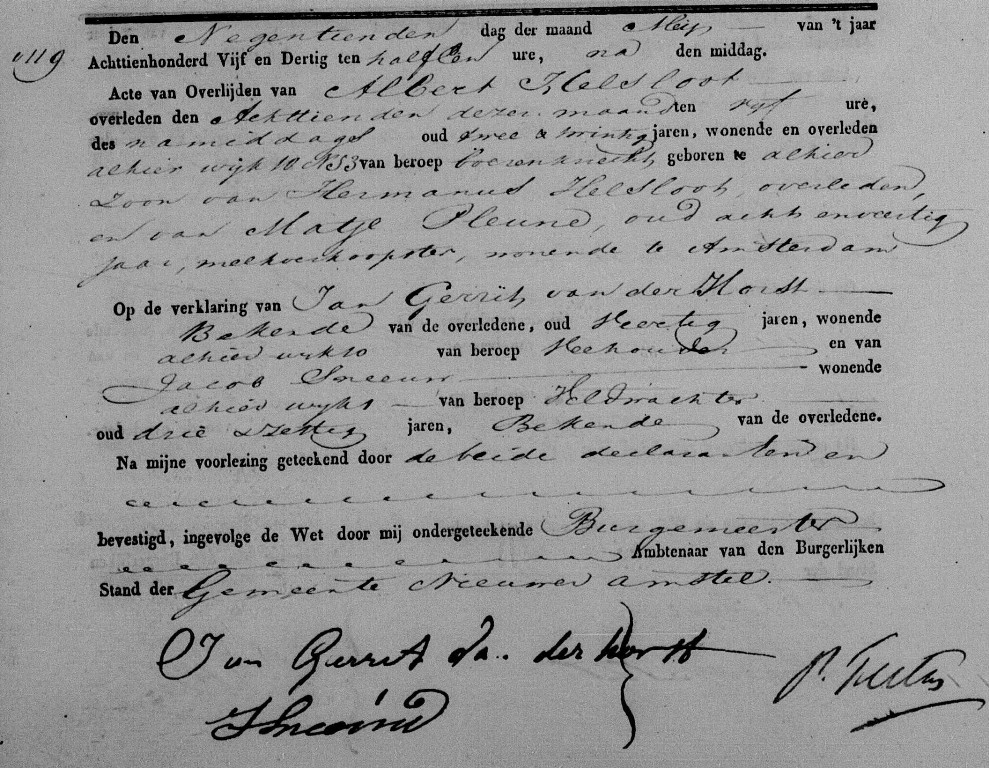 Den Negentienden dag der maand Mey van 't jaar
119
Achttienhonderd Vijf en Dertig ten half Een ure, na den middag.
Acte van Overlijden van Albert Helsloot
overleden den Achttienden dezer maand ten vyf ure,
des namiddags oud twee & twintig jaren, wonende en overleden
alhier wyk 10 N 53 van beroep boerenknecht, geboren te alhier
Zoon van Hermanus Helsloot, overleden,
en van Matje Pleune, oud acht en veertig
jaar, melkverkoopster, wonende te Amsterdam
Op de verklaring van Jan Gerrit van der Horst
Bekende van de overledene, oud Veertig jaren, wonende
alhier wyk 10 van beroep Veehouder en van
Jacob Sneeuw wonende
alhier wyk 1 van beroep Veldwachter
oud drie & zestig jaren, Bekende van de overledene.
Na mijne voorlezing geteekend door de beide declaranten en
bevestigd, ingevolge de Wet door mij ondergeteekende Burgemeester
Ambtenaar van den Burgerlijken
Stand der Gemeente Nieuwer Amstel.
Jan Gerrit van der horst